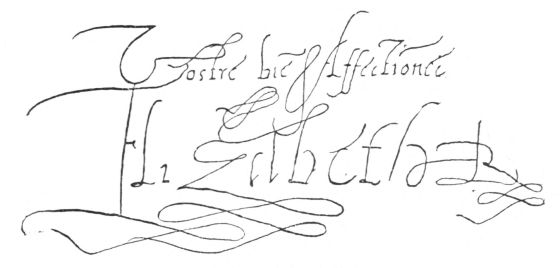 Vostre biē Affectionēe
Elizabeth R